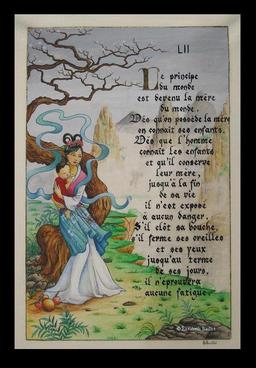 LII
Le principe
du monde
est devenu la mère
du monde.
Dès qu'on possède la mère
on connaît ses enfants.
Dès que l'homme
connaît les enfants
et qu'il conserve
leur mère,
jusqu'à la fin
de sa vie
il n'est exposé
à aucun danger.
S'il clôt sa bouche,
s'il ferme ses oreilles
et ses yeux
jusqu'au terme
de ses jours,
il n'éprouvera
aucune fatigue.